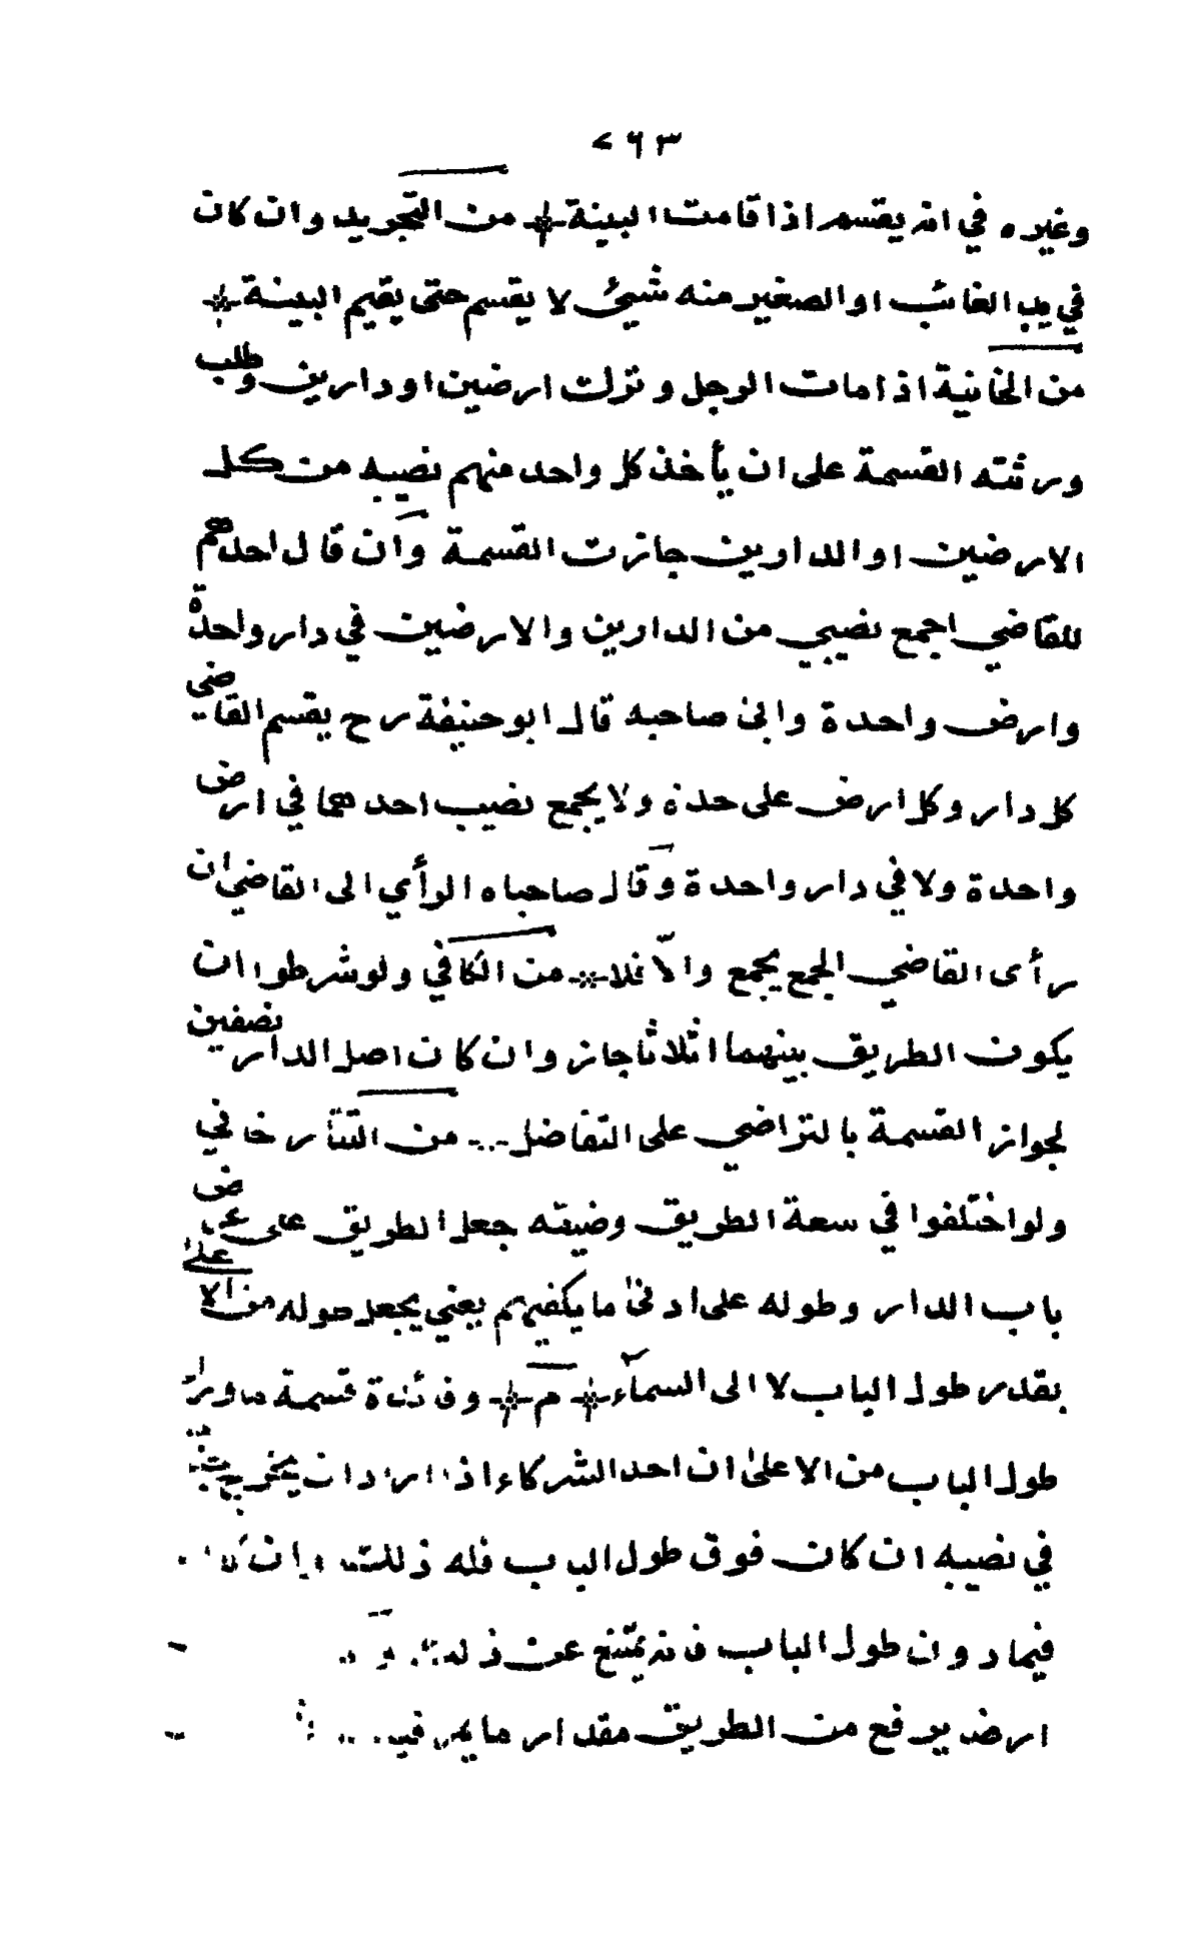 ٧٦٣
وغيره في انه يقسم اذا قامت البينة من التجريد وان كان
في يد الغائب او الصغير منه شيئ لا يقسم حتى يقيم البينة
من الخانية اذا مات الرجل وترك ارضين او دارين وطلب
ورثته القسمة على ان يأخذ كل واحد منهم نصيبه من كل
الارضين او الدارين جازت القسمة وان قال احدهم
للقاضي اجمع نصيبي من الدارين والارضين في دار واحدة
وارض واحدة وابى صاحبه قال ابو حنيفة رح يقسم القاضي
كل دار وكل ارض على حدة ولا يجمع نصيب احدهما في ارض
واحدة ولا في دار واحدة وقال صاحباه الرأي الى القاضي ان
رأى القاضي الجمع يجمع والّا فلا من الكافي ولو شرطوا ان
يكون الطريق بينهما اثلاثا جاز وان كان اصل الدار نصفين
لجواز القسمة بالتراضي على التفاضل من التتارخاني
ولو اختلفوا في سعة الطريق وضيقه جعل الطريق على عرض
باب الدار وطوله على ادنى ما يكفيهم يعني يجعل طوله من الاعلى
بقدر طول الباب لا الى السمآء م وفائدة قسمة ماوراء
طول الباب من الاعلى ان احد الشركاء اذا اراد ان يخرج
في نصيبه ان كان فوق طول الباب فله ذلك وان كان
فيما دون طول الباب فانه يمتنع عن ذلك
ارض يرفع من الطريق مقدار ما يمر فيه